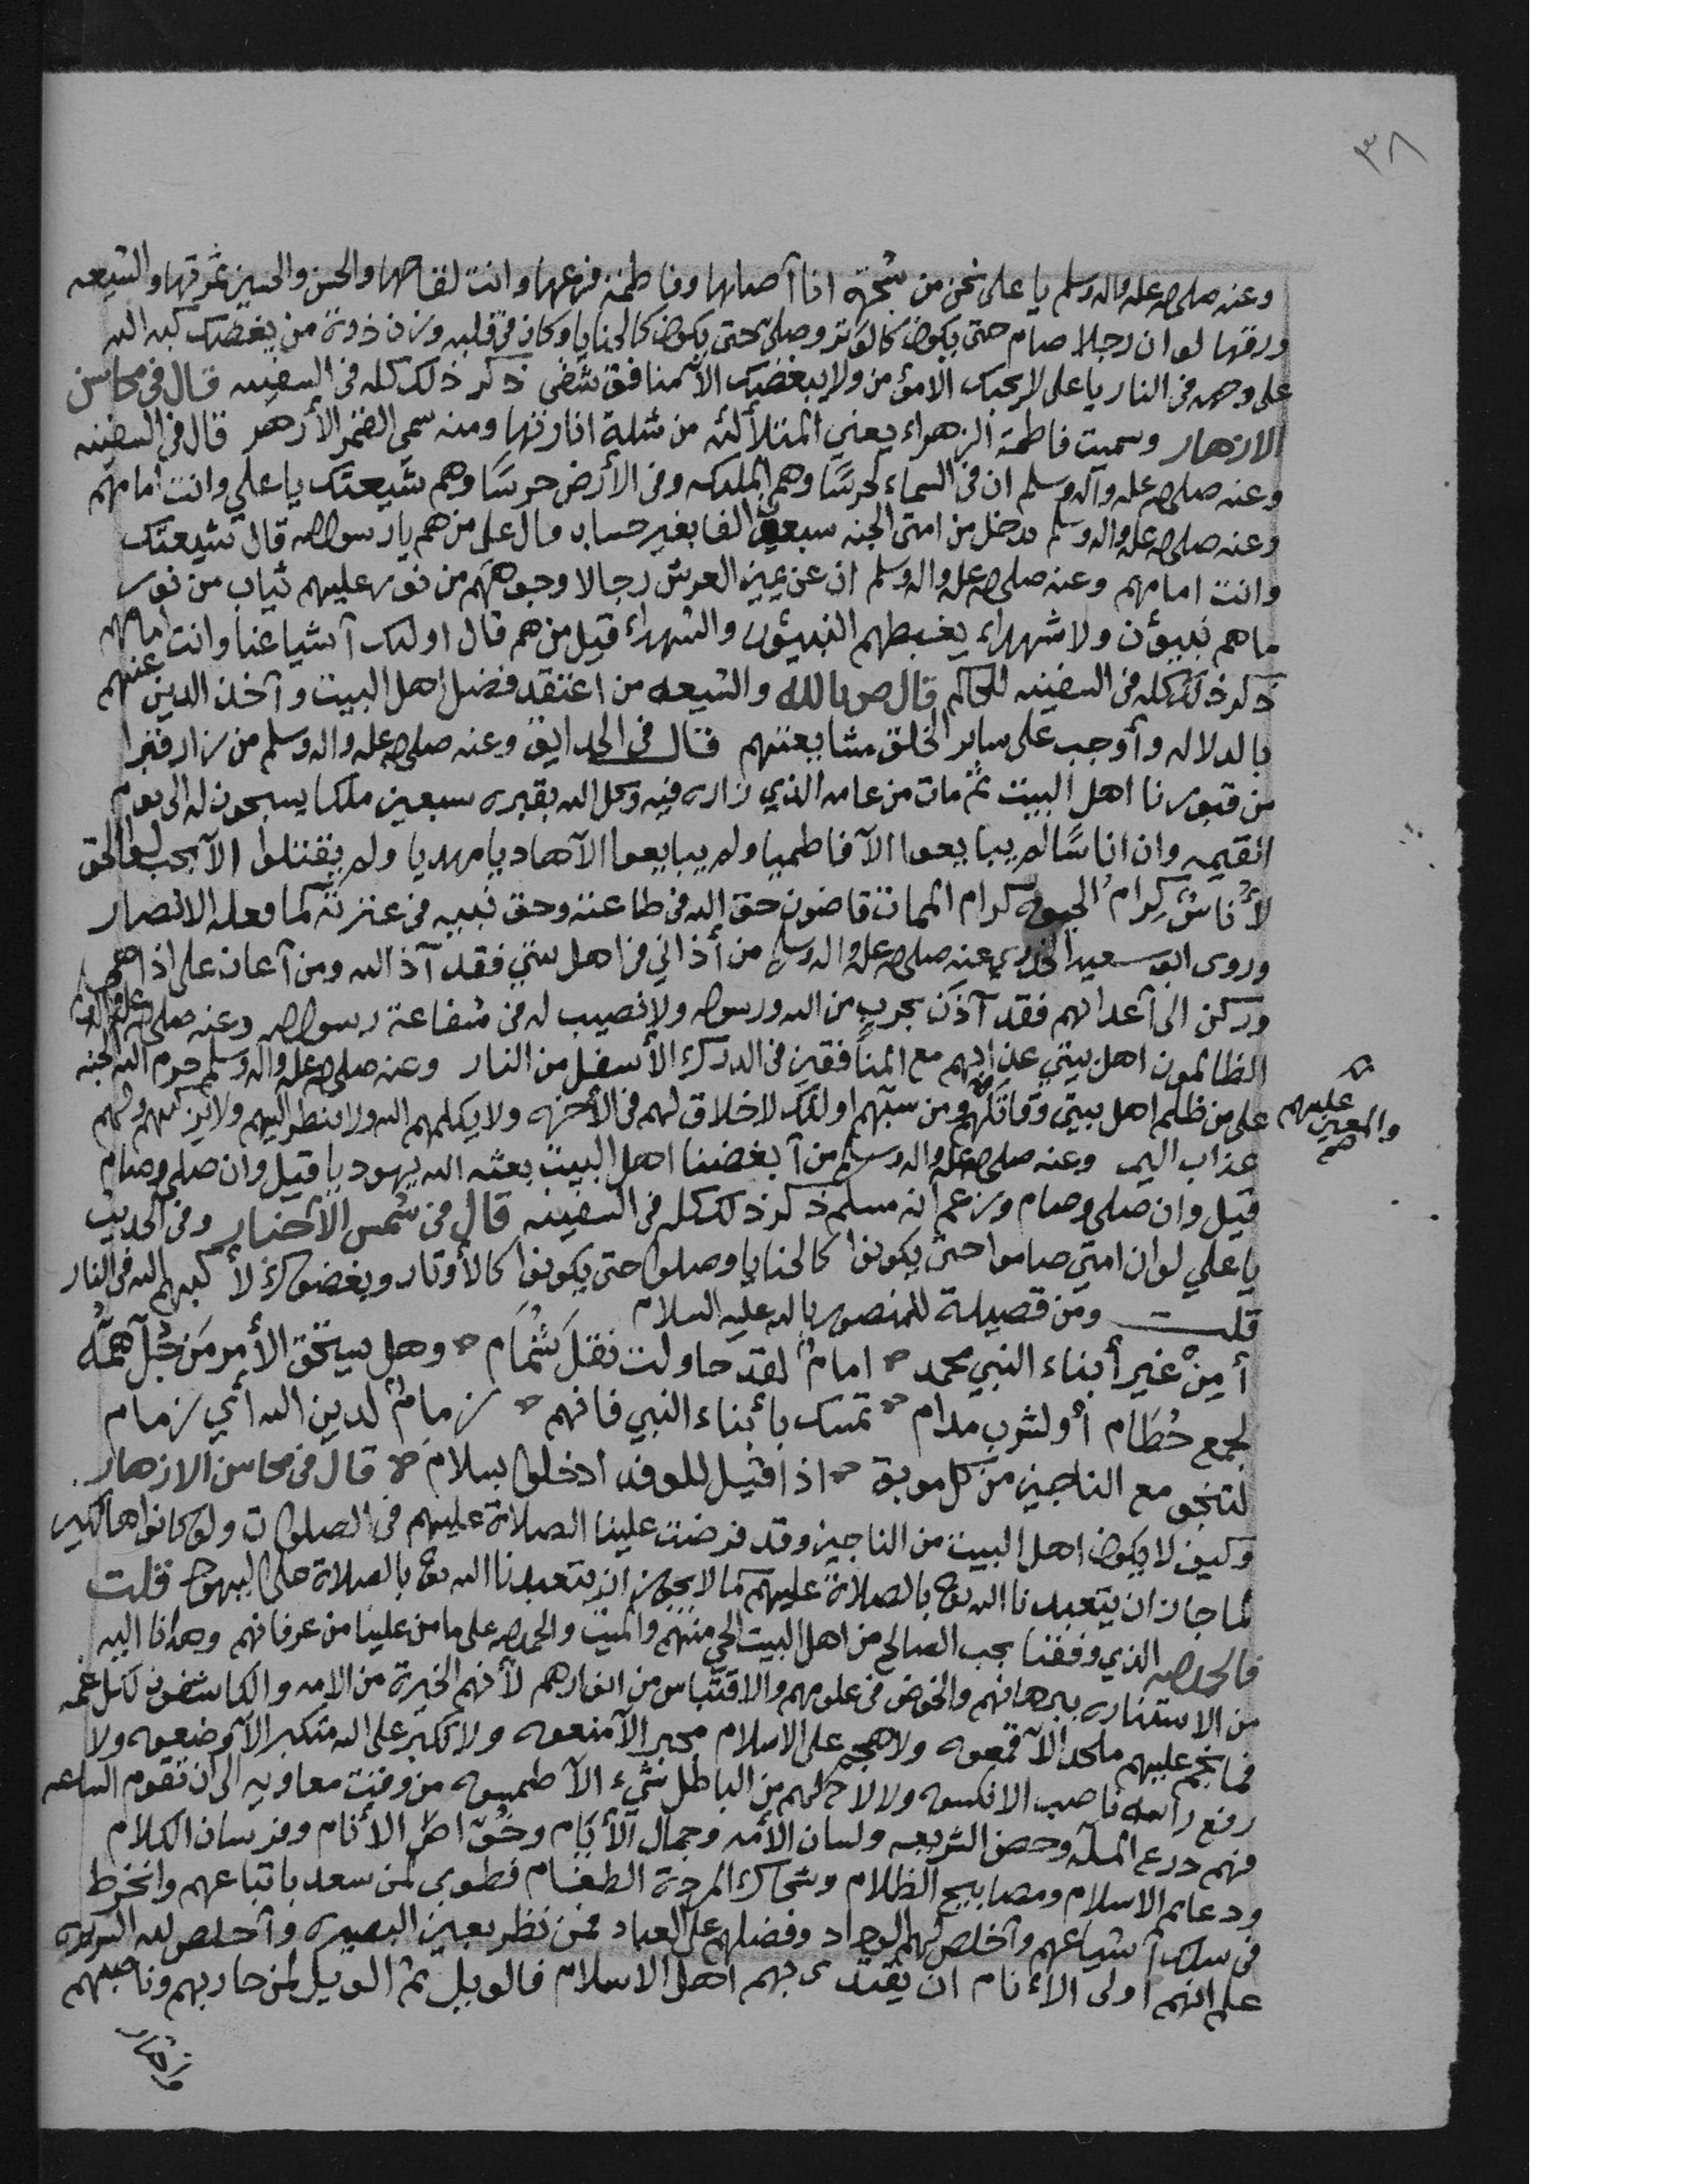 ٣٨
وعنه صلى الله عليه واله وسلم يا علي نحن من شجرة انا أصلها وفاطمة فرعها وانت لقاحها والحسن والحسين ثمرتها والشيعه
ورقها لو ان رجلا صام حتى يكون كالوتر وصلى حتى يكون كالحنايا وكان في قلبه وزن ذرة من بغضك كبه الله
على وجهه في النار يا علي لا يحبك الا مؤمن ولا يبغضك الا منافق شقي ذكر ذلك كله في السفينه قال في محاسن
الازهار وسميت فاطمة الزهراء يعني المتلألئه من شدة انارتها ومنه سمي القمر الأزهر قال في السفينه
وعنه صلى الله عليه وآله وسلم ان في السماء لحرسًا وهم الملئكه وفي الأرض حرسًا وهم شيعتك يا علي وانت امامهم
وعنه صلى الله عليه واله وسلم يدخل من امتي الجنه سبعين الفا بغير حساب قال علي من هم يا رسول الله قال شيعتك
وانت امامهم وعنه صلى الله عليه واله وسلم ان عن يمين العرش رجالا وجوههم من نور عليهم ثياب من نور
ما هم نبيؤن ولا شهداء يغبطهم النبيئون والشهداء قيل من هم قال اولئك أشياعنا وانت امامهم
ذكر ذلك كله في السفينه للحاكم قال ص بالله والشيعه من اعتقد فضل اهل البيت وأخذ الدين عنهم
بالدلاله وأوجب على ساير الخلق مشايعتهم قال في الحدايق وعنه صلى الله عليه واله وسلم من زار قبرا
من قبورنا اهل البيت ثم مات من عامه الذي زاره فيه وكل الله بقبره سبعين ملكا يسبحون له الى يوم
القيمه وان اناسًا لم يبايعوا الآ فاطميا ولم يبايعوا الآ هاديا مهديا ولم يقتتلوا الآ
لأناسٌ كرام الحيوة كرام الممات قاضون حق الله في طاعته وحق نبيه في عترته كما فعله الانصار
وروى ابو سعيد الخدري عنه صلى الله عليه واله وسلم من أذاني في اهل بيتي فقد آذ الله ومن أعان على اذاهم
وركن الى أعدائهم فقد آذن بحرب من الله ورسوله ولا نصيب له في شفاعة رسول الله وعنه صلى الله عليه واله
الظالمون اهل بيتي عذابهم مع المنافقين في الدرك الأسفل من النار وعنه صلى الله عليه واله وسلم حرم الله الجنه
على من ظلم اهل بيتي وقاتلهم ومن سبهم اولئك لا خلاق لهم في الأخره ولا يكلمهم الله ولا ينظر اليهم ولا يزكيهم ولهم
والمعين عليهم
عذاب اليم وعنه صلى الله عليه واله وسلم من أبغضنا اهل البيت بعثه الله يهوديا قيل وان صلى وصام
قيل وان صلى وصام وزعم انه مسلم ذكر ذلك كله في السفينه قال في شمس الأخبار وفي الحديث
يا علي لو ان امتي صاموا حتى يكونوا كالحنايا وصلوا حتى يكونوا كالأوتار وبغضوك لأكبهم الله في النار
قلت ومن قصيدة للمنصور بالله عليه السلام
أمِنْ غير أبناء النبي محمد امامٌ لقد حاولت نقل شمام وهل يستحق الأمر من جُل همّه
لجمع حُطَام أو لشرب مدام تمسك بأبناء النبي فانهم زمامٌ لدين الله أي زمام
لتنجو مع الناجين من كل موبق اذا قيل للوفد ادخلوا بسلام قال في محاسن الازهار
وكيف لا يكون اهل البيت من الناجين وقد فرضت علينا الصلاة عليهم في الصلوات ولو كانوا هالكين
لما جاز ان يتعبدنا الله تع بالصلاة عليهم كما لا يجوز ان يتعبدنا الله تع بالصلاة على اليهود قلت
فالحمدلله الذي وفقنا بحب الصالح من اهل البيت الحي منهم والميت والحمدلله على ما من علينا من عرفانهم وهدانا اليه
من الاستناره ببرهانهم والخوض في علومهم والاقتباس من انوارهم لأنهم الخيرة من الامه والكاشفون لكل غمه
فما نجم عليهم ملحد الآ قمعوه ولا هجم على الاسلام مجبر الآ منعوه ولا تكبر على الله متكبر الآ وضعوه ولا
رفع راسه ناصب الا نكسوه ولا لاح لهم من الباطل شيء الآ طمسوه من وقت معاويه الى ان تقوم الساعه
فهم درع الملة وحصن الشريعه ولسان الأمه وجمال الأيام الأنام وفرسان الكلام
ودعايم الاسلام ومصابيح الظلام الطغام فطوبى لمن سعد باتباعهم وانخرط
في سلك أشياعهم وأخلص لهم الوداد وفضلهم على العباد فمن نظر بعين البصيره وأخلص لله السريره
علم انهم أولى الأنام ان يقتدى بهم اهل الاسلام فالويل ثم الويل لمن حاربهم وناصبهم